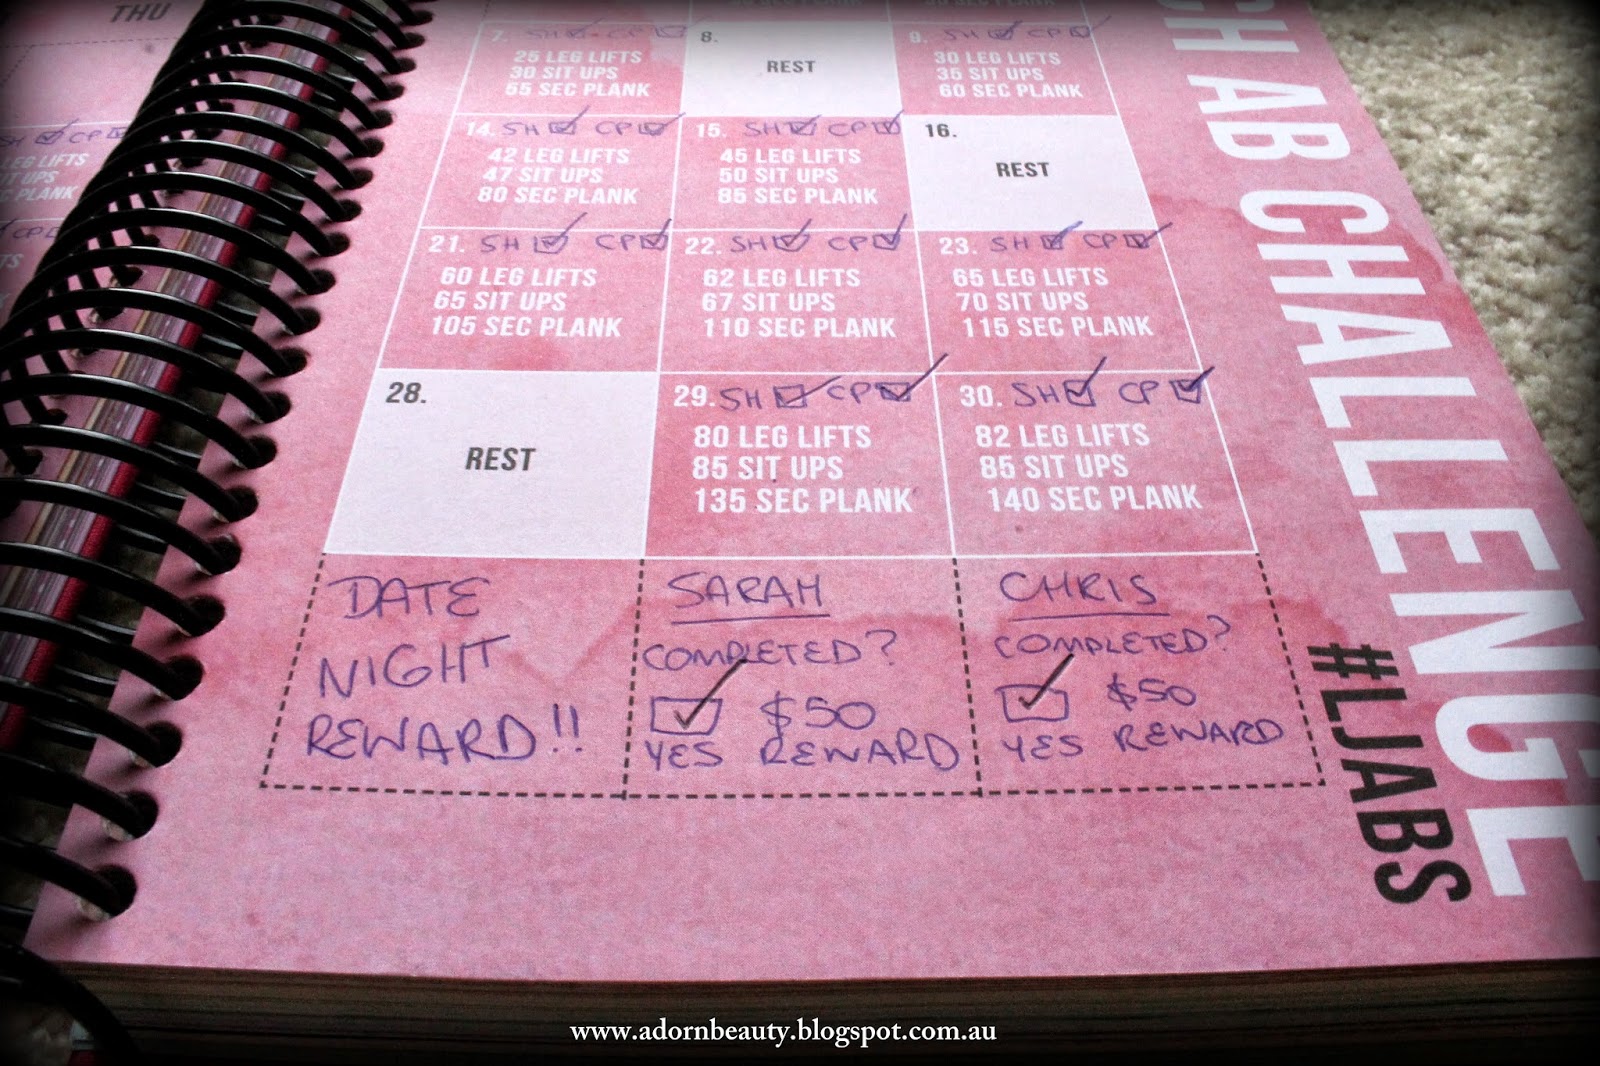 THU
7. SH CP
25 LEG LIFTS
30 SIT UPS
55 SEC PLANK
8.
REST
9. SH CP
30 LEG LIFTS
35 SIT UPS
60 SEC PLANK
SH CP
LEG LIFTS
SIT UPS
PLANK
14. SH CP
42 LEG LIFTS
47 SIT UPS
80 SEC PLANK
15. SH CP
45 LEG LIFTS
50 SIT UPS
85 SEC PLANK
16.
REST
CP
21. SH CP
60 LEG LIFTS
65 SIT UPS
105 SEC PLANK
22. SH CP
62 LEG LIFTS
67 SIT UPS
110 SEC PLANK
23. SH CP
65 LEG LIFTS
70 SIT UPS
115 SEC PLANK
28.
REST
29. SH CP
80 LEG LIFTS
85 SIT UPS
135 SEC PLANK
30. SH CP
82 LEG LIFTS
85 SIT UPS
140 SEC PLANK
DATE
NIGHT
REWARD!!
SARAH
COMPLETED?
$50
YES REWARD
CHRIS
COMPLETED?
$50
YES REWARD
AB CHALLENGE
#LJABS
www.adornbeauty.blogspot.com.au